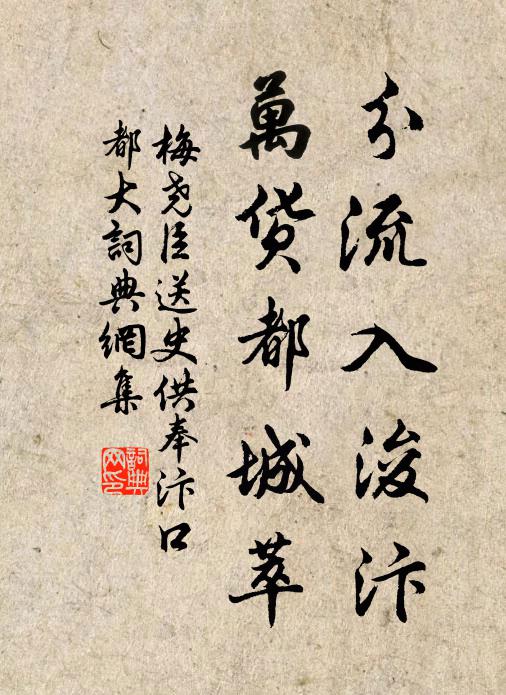 分流入浚汴
萬货都城萃
梅尧臣送史供奉汴口
都大詞典網集
詞典网印